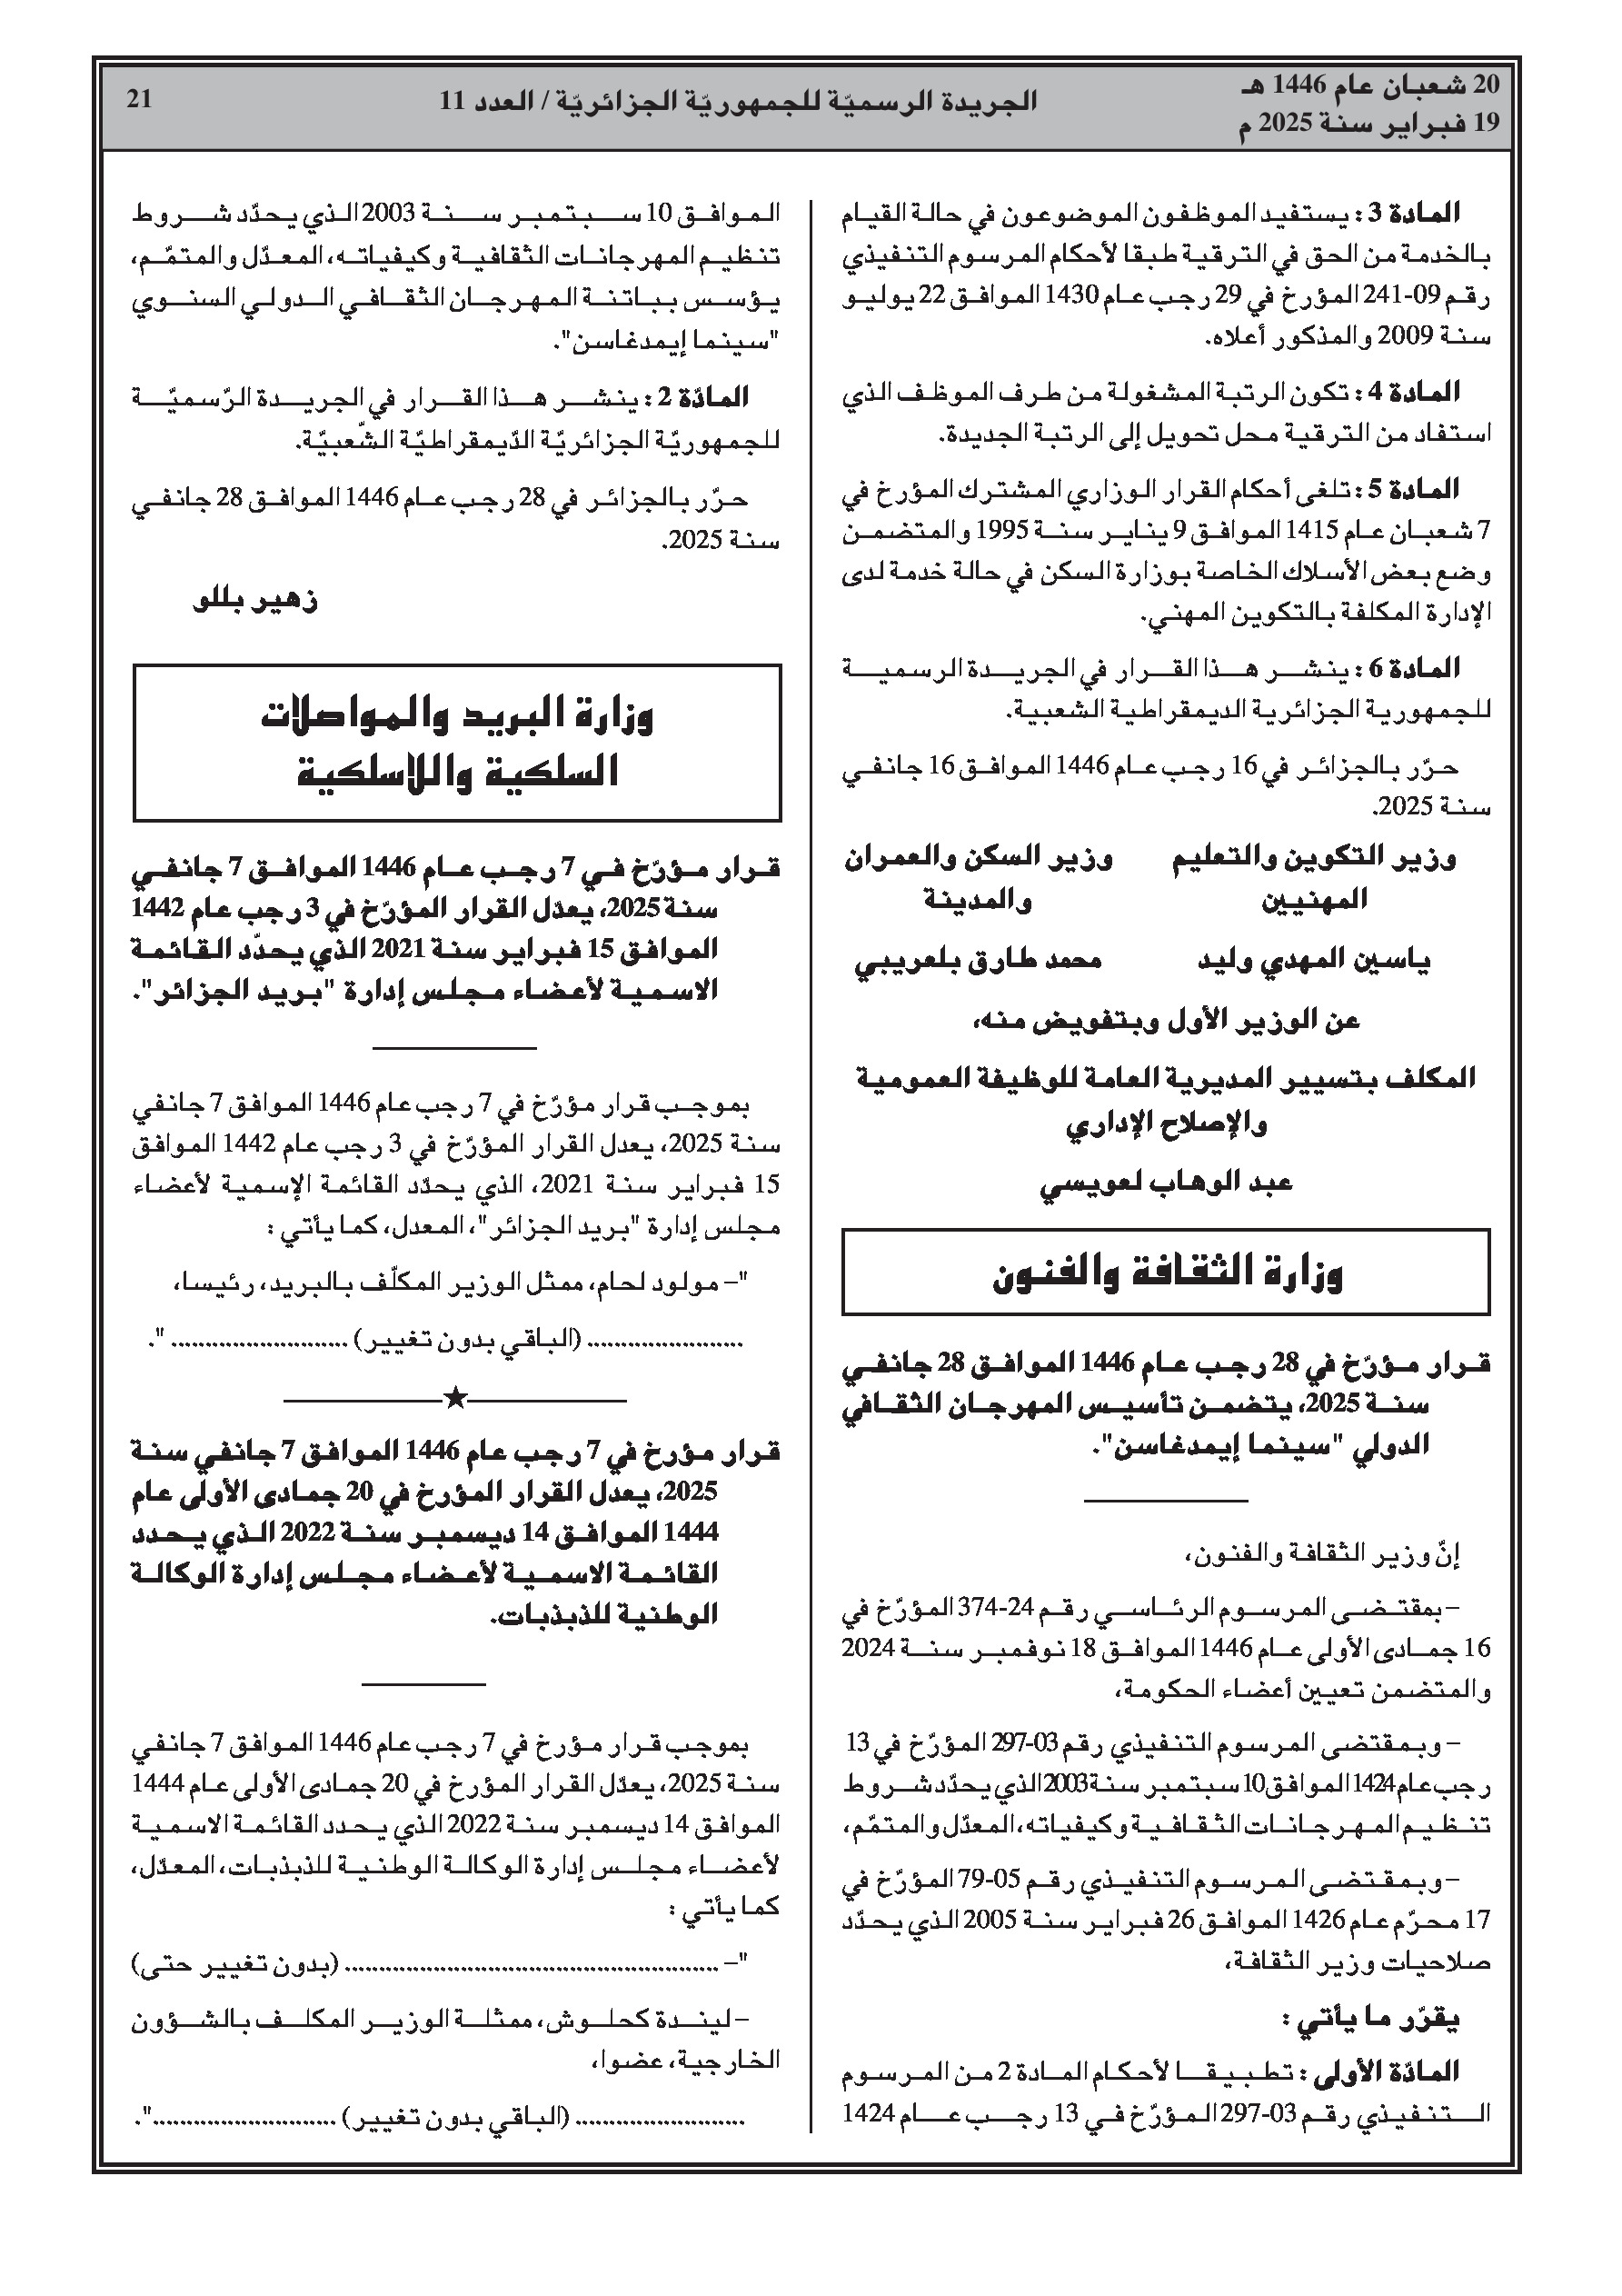 20 شعبان عام 1446 هـ
19 فبراير سنة 2025 م
الجريدة الرسميّة للجمهوريّة الجزائريّة / العدد 11
21
المادة 3 : يستفيد الموظفون الموضوعون في حالة القيام
بالخدمة من الحق في الترقية طبقا لأحكام المرسوم التنفيذي
رقم 09-241 المؤرخ في 29 رجب عام 1430 الموافق 22 يوليو
سنة 2009 والمذكور أعلاه.
المادة 4 : تكون الرتبة المشغولة من طرف الموظف الذي
استفاد من الترقية محل تحويل إلى الرتبة الجديدة.
المادة 5 : تلغى أحكام القرار الوزاري المشترك المؤرخ في
7 شعبان عام 1415 الموافق 9 يناير سنة 1995 والمتضمن
وضع بعض الأسلاك الخاصة بوزارة السكن في حالة خدمة لدى
الإدارة المكلفة بالتكوين المهني.
المادة 6 : ينشر هذا القرار في الجريدة الرسمية
للجمهورية الجزائرية الديمقراطية الشعبية.
حرّر بالجزائر في 16 رجب عام 1446 الموافق 16 جانفي
سنة 2025.
وزير التكوين والتعليم وزير السكن والعمران
المهنيين والمدينة
ياسين المهدي وليد محمد طارق بلعريبي
عن الوزير الأول وبتفويض منه،
المكلف بتسيير المديرية العامة للوظيفة العمومية
والإصلاح الإداري
عبد الوهاب لعويسي
وزارة الثقافة والفنون
قرار مؤرّخ في 28 رجب عام 1446 الموافق 28 جانفي
سنة 2025، يتضمن تأسيس المهرجان الثقافي
الدولي "سينما إيمدغاسن".
إنّ وزير الثقافة والفنون،
– بمقتضى المرسوم الرئاسي رقم 24-374 المؤرّخ في
16 جمادى الأولى عام 1446 الموافق 18 نوفمبر سنة 2024
والمتضمن تعيين أعضاء الحكومة،
– وبمقتضى المرسوم التنفيذي رقم 03-297 المؤرّخ في 13
رجب عام 1424 الموافق 10 سبتمبر سنة 2003 الذي يحدّد شروط
تنظيم المهرجانات الثقافية وكيفياته، المعدّل والمتمّم،
– وبمقتضى المرسوم التنفيذي رقم 05-79 المؤرّخ في
17 محرّم عام 1426 الموافق 26 فبراير سنة 2005 الذي يحدّد
صلاحيات وزير الثقافة،
يقرّر ما يأتي :
المادّة الأولى : تطبيقا لأحكام المادة 2 من المرسوم
التنفيذي رقم 03-297 المؤرّخ في 13 رجب عام 1424
الموافق 10 سبتمبر سنة 2003 الذي يحدّد شروط
تنظيم المهرجانات الثقافية وكيفياته، المعدّل والمتمّم،
يؤسس بباتنة المهرجان الثقافي الدولي السنوي
"سينما إيمدغاسن".
المادّة 2 : ينشر هذا القرار في الجريدة الرّسميّة
للجمهوريّة الجزائريّة الدّيمقراطيّة الشّعبيّة.
حرّر بالجزائر في 28 رجب عام 1446 الموافق 28 جانفي
سنة 2025.
زهير بللو
وزارة البريد والمواصلات
السلكية واللاسلكية
قرار مؤرّخ في 7 رجب عام 1446 الموافق 7 جانفي
سنة 2025، يعدّل القرار المؤرّخ في 3 رجب عام 1442
الموافق 15 فبراير سنة 2021 الذي يحدّد القائمة
الاسمية لأعضاء مجلس إدارة "بريد الجزائر".
بموجب قرار مؤرّخ في 7 رجب عام 1446 الموافق 7 جانفي
سنة 2025، يعدل القرار المؤرّخ في 3 رجب عام 1442 الموافق
15 فبراير سنة 2021، الذي يحدّد القائمة الإسمية لأعضاء
مجلس إدارة "بريد الجزائر"، المعدل، كما يأتي :
"– مولود لحام، ممثل الوزير المكلّف بالبريد، رئيسا،
....................... (الباقي بدون تغيير) .......................... ".
★
قرار مؤرخ في 7 رجب عام 1446 الموافق 7 جانفي سنة
2025، يعدل القرار المؤرخ في 20 جمادى الأولى عام
1444 الموافق 14 ديسمبر سنة 2022 الذي يحدد
القائمة الاسمية لأعضاء مجلس إدارة الوكالة
الوطنية للذبذبات.
بموجب قرار مؤرخ في 7 رجب عام 1446 الموافق 7 جانفي
سنة 2025، يعدّل القرار المؤرخ في 20 جمادى الأولى عام 1444
الموافق 14 ديسمبر سنة 2022 الذي يحدد القائمة الاسمية
لأعضاء مجلس إدارة الوكالة الوطنية للذبذبات، المعدّل،
كما يأتي :
"– ....................................................... (بدون تغيير حتى)
– ليندة كحلوش، ممثلة الوزير المكلف بالشؤون
الخارجية، عضوا،
......................... (الباقي بدون تغيير) ...........................".